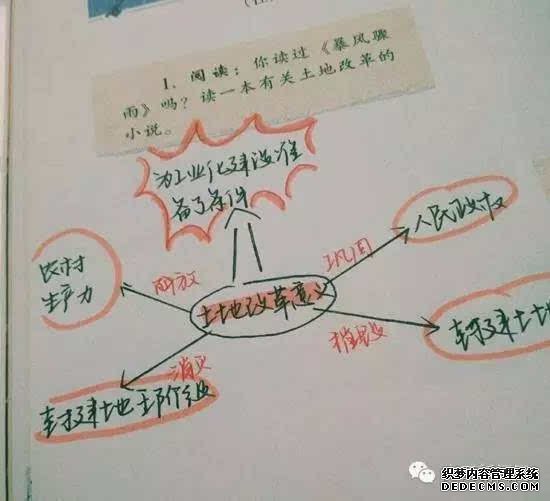 1. 阅读：你读过《暴风骤
雨》吗？读一本有关土地改革的
小说。
为工业化建设准
备了条件
人民政权
农村
生产力
解放
巩固
土地改革意义
消灭
摧毁
封建土地
封建地主阶级
织梦内容管理系统
DEDECMS.COM